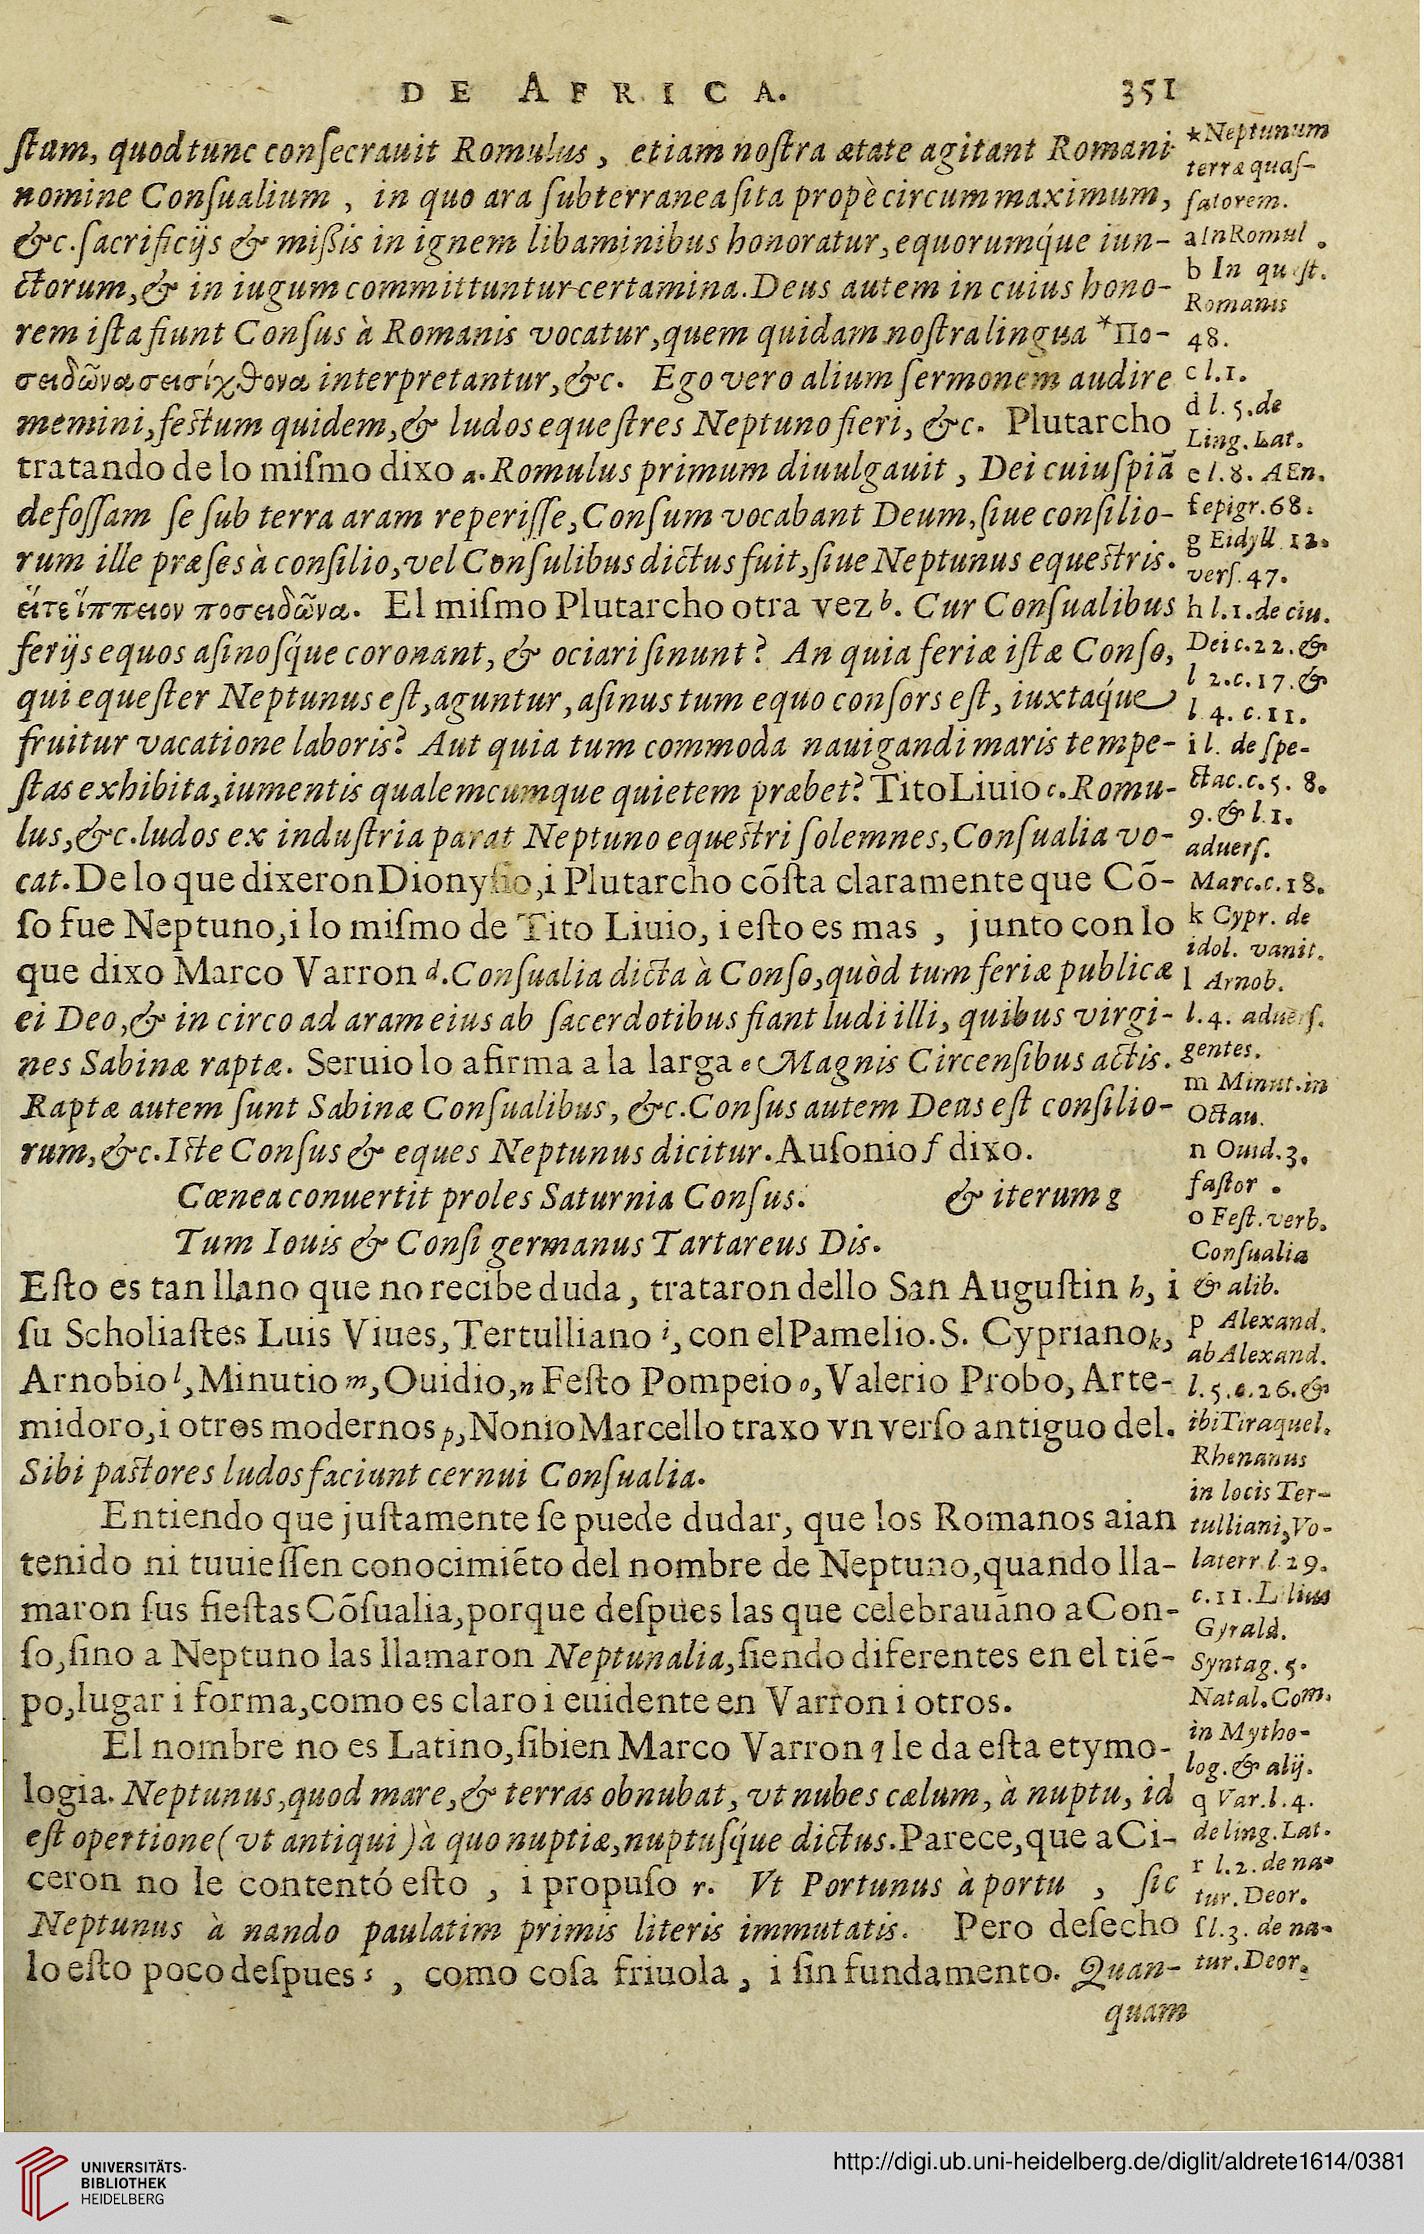 DE AFRICA. 351
ſtam, quod tunc conſecrauit Romulus, etiam noſtra ætate agitant Romani
nomine Conſualium, in quo ara ſubterranea ſita propè circum maximum,
&c. ſacrificijs & mißis in ignem libaminibus honoratur, equorumq́ue iun-
ctorum, & in iugum committuntur certamina. Deus autem in cuius hono-
rem iſta fiunt Conſus à Romanis vocatur, quem quidam noſtra lingua *Πο-
σειδῶνα σεισίχθονα interpretantur, &c. Ego vero alium ſermonem audire
memini, feſtum quidem, & ludos equeſtres Neptuno fieri, &c. Plutarcho
tratando de lo miſmo dixo a. Romulus primum diuulgauit, Dei cuiuſpiā
defoſſam ſe ſub terra aram reperiſſe, Conſum vocabant Deum, ſiue conſilio-
rum ille præſes à conſilio, vel Conſulibus dictus fuit, ſiue Neptunus equeſtris.
εἴτε ἵππειον ποσειδῶνα. El miſmo Plutarcho otra vez b. Cur Conſualibus
ferijs equos aſinoſq́ue coronant, & ociari ſinunt? An quia feriæ iſtæ Conſo,
qui equeſter Neptunus eſt, aguntur, aſinus tum equo conſors eſt, iuxtaq́ue
fruitur vacatione laboris? Aut quia tum commoda nauigandi maris tempe-
ſtas exhibita, iumentis qualemcumque quietem præbet? Tito Liuio c. Romu-
lus, &c. ludos ex induſtria parat Neptuno equeſtri ſolemnes, Conſualia vo-
cat. De lo que dixeron Dionyſio, i Plutarcho cōſta claramente que Cō-
ſo fue Neptuno, i lo miſmo de Tito Liuio, i eſto es mas, junto con lo
que dixo Marco Varron d. Conſualia dicta à Conſo, quòd tum feriæ publicæ
ei Deo, & in circo ad aram eius ab ſacerdotibus fiant ludi illi, quibus virgi-
nes Sabinæ raptæ. Seruio lo afirma a la larga e Magnis Circenſibus actis.
Raptæ autem ſunt Sabinæ Conſualibus, &c. Conſus autem Deus eſt conſilio-
rum, &c. Iſte Conſus & eques Neptunus dicitur. Auſonio f dixo.
Cœnea conuertit proles Saturnia Conſus. & iterum g
Tum Iouis & Conſi germanus Tartareus Dis.
Eſto es tan llano que no recibe duda, trataron dello San Auguſtin h, i
ſu Scholiaſtes Luis Viues, Tertulliano i, con el Pamelio. S. Cypriano k,
Arnobio l, Minutio m, Ouidio, n Feſto Pompeio o, Valerio Probo, Arte-
midoro, i otros modernos p, Nonio Marcello traxo vn verſo antiguo del.
Sibi paſtores ludos faciunt cernui Conſualia.
Entiendo que juſtamente ſe puede dudar, que los Romanos aian
tenido ni tuuieſſen conocimiēto del nombre de Neptuno, quando lla-
maron ſus fieſtas Cōſualia, porque deſpues las que celebrauā no a Con-
ſo, ſino a Neptuno las llamaron Neptunalia, ſiendo diferentes en el tiē-
po, lugar i forma, como es claro i euidente en Varron i otros.
El nombre no es Latino, ſibien Marco Varron q le da eſta etymo-
logia. Neptunus, quod mare, & terras obnubat, vt nubes cælum, à nuptu, id
eſt opertione (vt antiqui) à quo nuptiæ, nuptuſq́ue dictus. Parece, que a Ci-
ceron no le contentó eſto, i propuſo r. Vt Portunus à portu, ſic
Neptunus à nando paulatim primis literis immutatis. Pero deſecho
lo eſto poco deſpues s, como coſa friuola, i ſin fundamento. Quan-
quam
*Neptunum
terræ quaſ-
ſatorem.
a In Romul.
b In quæſt.
Romanis
48.
c l.1.
d l. 5. de
Ling. Lat.
e l. 8. AEn.
f epigr. 68.
g Eidyll 12.
verſ. 47.
h l. 1. de ciu.
Dei c. 22. &
l 2. c. 17. &
l. 4. c. 11.
i l. de ſpe-
ctac. c. 5. 8.
9. & l. 1.
aduerſ.
Marc. c. 18.
k Cypr. de
idol. vanit.
l Arnob.
l. 4. aduerſ.
gentes.
m Minut. in
Octau.
n Ouid. 3.
faſtor.
o Feſt. verb.
Conſualia
& alib.
p Alexand.
ab Alexand.
l. 5. c. 26. &
ibi Tiraquel.
Rhenanus
in locis Ter-
tulliani, Vo-
laterr. l 29.
c. 11. Lilius
Gyrald.
Syntag. 5.
Natal. Com.
in Mytho-
log. & alij.
q Var. l. 4.
de ling. Lat.
r l. 2. de na-
tur. Deor.
ſ l. 3. de na-
tur. Deor.
UNIVERSITÄTS-
BIBLIOTHEK
HEIDELBERG
http://digi.ub.uni-heidelberg.de/diglit/aldrete1614/0381